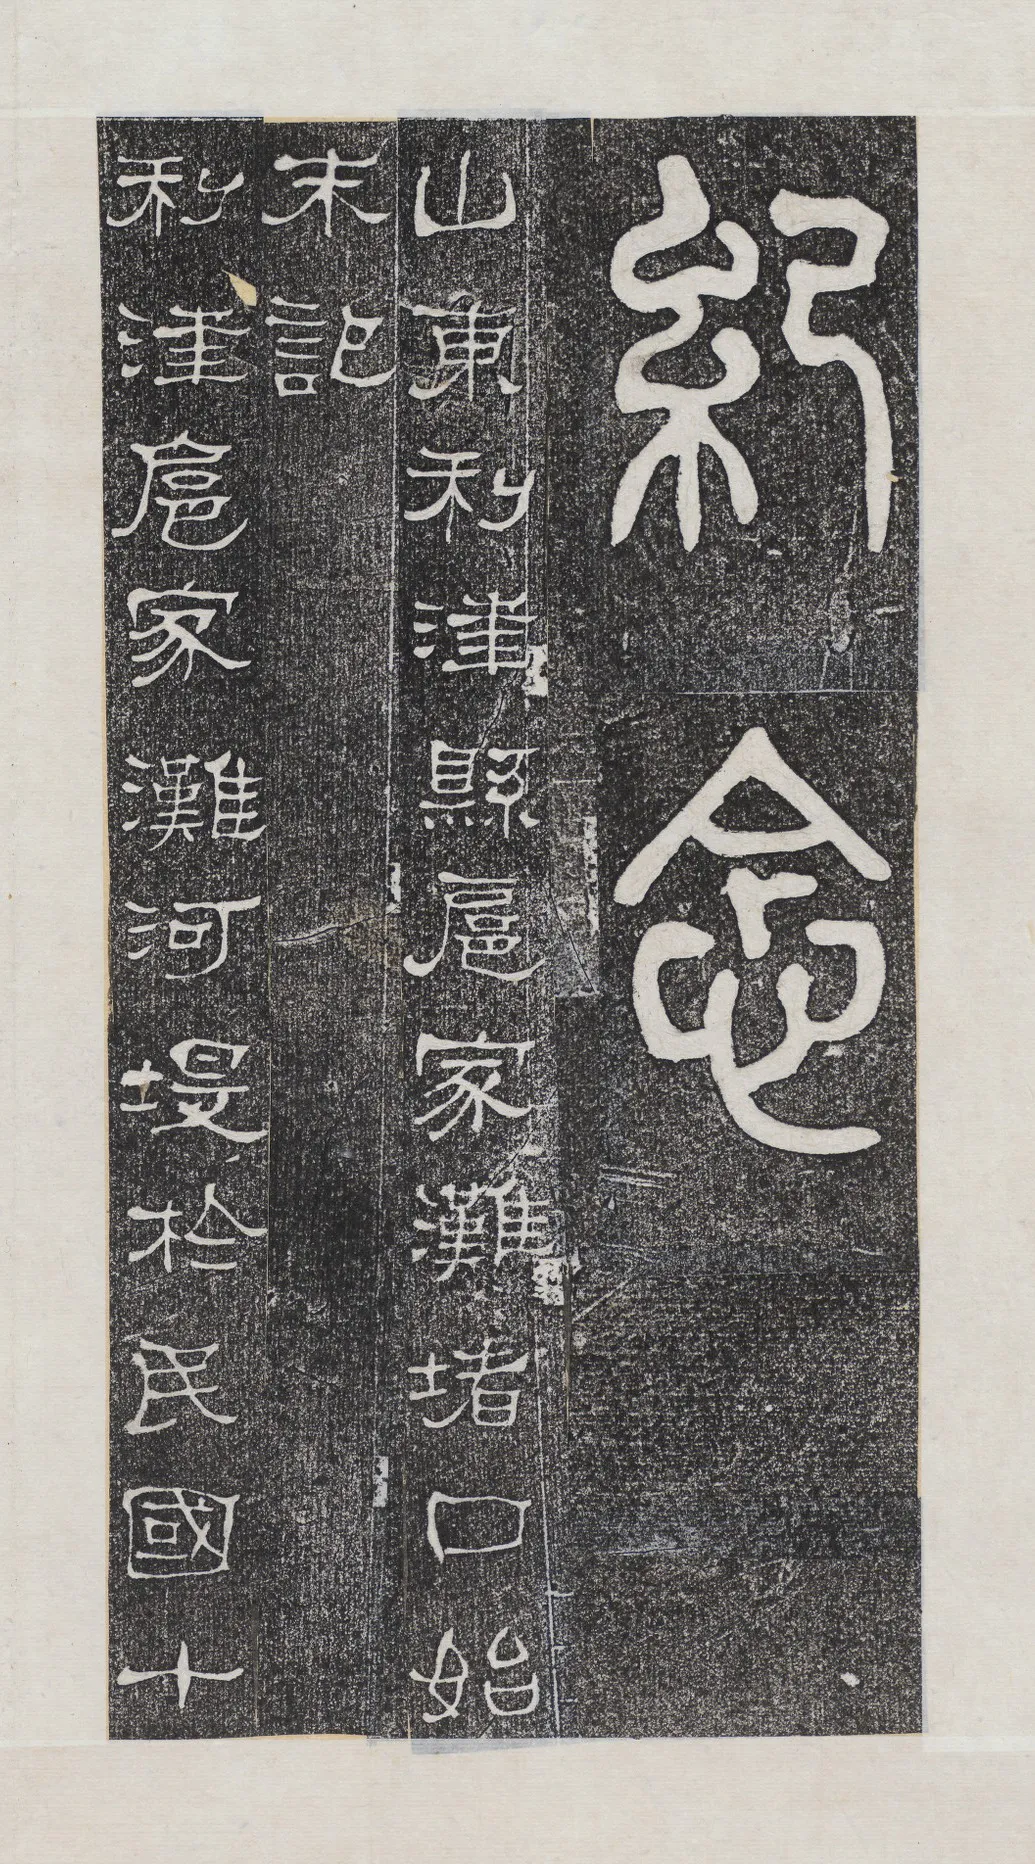 紀念
山東利津縣扈家灘堵口始
末記
利津扈家灘河堤於民國十